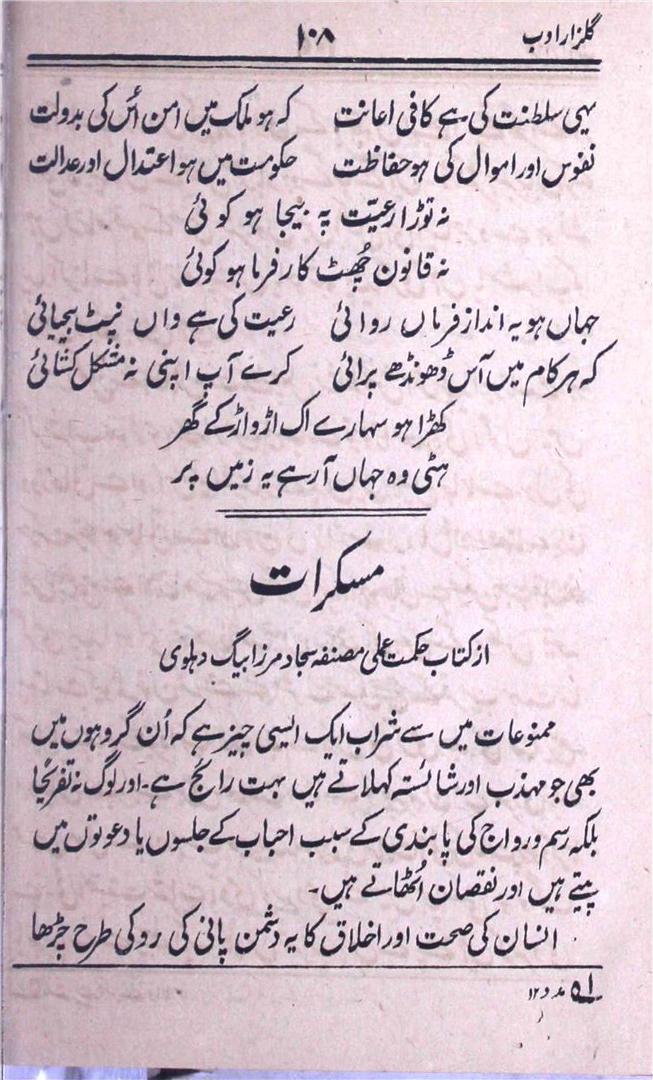 گلزار ادب ۱۰۸
یہی سلطنت کی ہے کافی اعانت کہ ہو ملک میں امن اُس کی بدولت
نفوس اور اموال کی ہو حفاظت حکومت میں ہو اعتدال اور عدالت
نہ توڑا رعیّت پہ بیجا ہو کوئی
نہ قانون چُھٹ کارفرما ہو کوئی
جہاں ہو یہ انداز فرماں روائی رعیت کی ہے واں نپٹ بیحیائی
کہ ہر کام میں آس ڈھونڈھے پرائی کرے آپ اپنی نہ مشکل کشائی
کھڑا ہو سہارے اک اڑواڑ کے گھر
ہٹی وہ جہاں آ رہے یہ زمیں پر
مسکرات
از کتاب حکمت عملی مصنفہ سجاد مرزا بیگ دہلوی
ممنوعات میں سے شراب ایک ایسی چیز ہے کہ اُن گروہوں میں
بھی جو مہذب اور شائستہ کہلاتے ہیں بہت رائج ہے۔ اور لوگ نہ تفریحاً
بلکہ رسم و رواج کی پابندی کے سبب احباب کے جلسوں یا دعوتوں میں
پیتے ہیں اور نقصان اُٹھاتے ہیں۔
انسان کی صحت اور اخلاق کا یہ دشمن پانی کی رو کی طرح چڑھا
مدد ۱۲